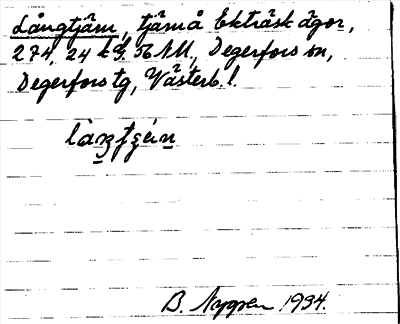 Långtjärn, tjärn å Ekträsk ägor,
274, 24 k G. 56 NM, Degerfors sn,
Degerfors tg, Västerb. l.
B. Nygren 1934.